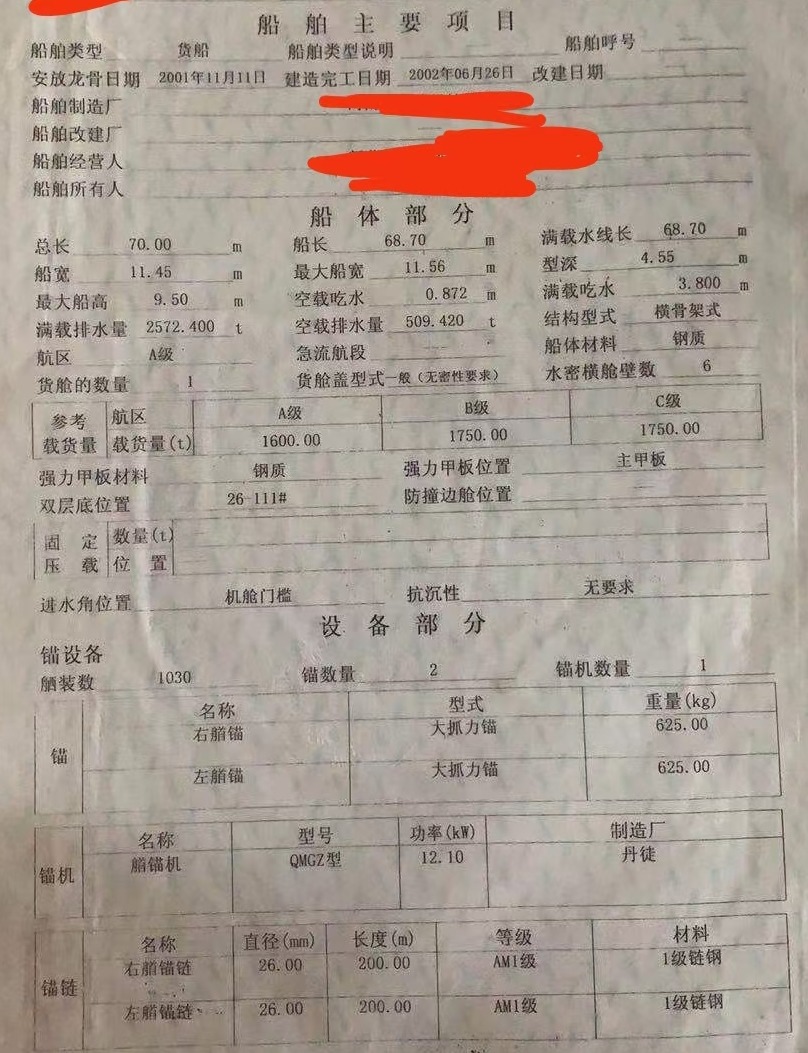 船舶主要项目
船舶类型 货船 船舶类型说明 船舶呼号
安放龙骨日期 2001年11月11日 建造完工日期 2002年06月26日 改建日期
船舶制造厂
船舶改建厂
船舶经营人
船舶所有人
船体部分
总长 70.00 m 船长 68.70 m 满载水线长 68.70 m
船宽 11.45 m 最大船宽 11.56 m 型深 4.55 m
最大船高 9.50 m 空载吃水 0.872 m 满载吃水 3.800 m
满载排水量 2572.400 t 空载排水量 509.420 t 结构型式 横骨架式
航区 A级 急流航段 船体材料 钢质
货舱的数量 1 货舱盖型式 一般（无密性要求） 水密横舱壁数 6
参考载货量 航区 A级 B级 C级
载货量(t) 1600.00 1750.00 1750.00
强力甲板材料 钢质 强力甲板位置 主甲板
双层底位置 26-111# 防撞边舱位置
固定压载 数量(t)
位置
进水角位置 机舱门槛 抗沉性 无要求
设备部分
锚设备
舾装数 1030 锚数量 2 锚机数量 1
锚 名称 型式 重量(kg)
右艏锚 大抓力锚 625.00
左艏锚 大抓力锚 625.00
锚机 名称 型号 功率(kW) 制造厂
艏锚机 QMGZ型 12.10 丹徒
锚链 名称 直径(mm) 长度(m) 等级 材料
右艏锚链 26.00 200.00 AM1级 1级链钢
左艏锚链 26.00 200.00 AM1级 1级链钢